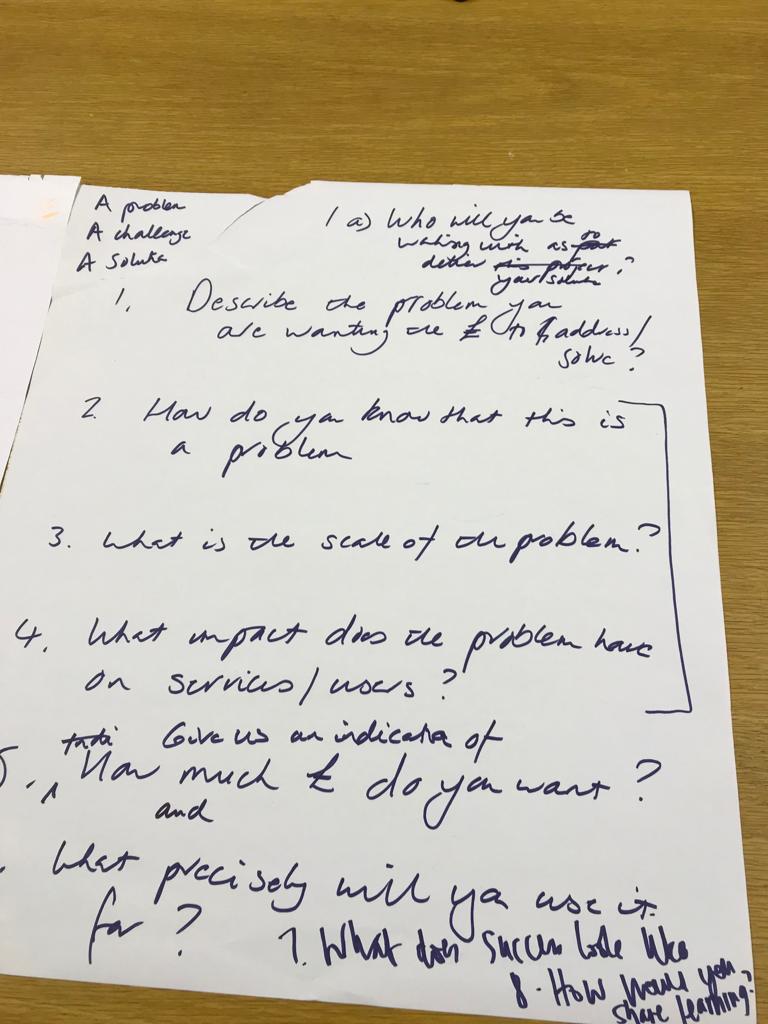 A problem
A challenge
A Solution
1 a) Who will you be
working with as to
deliver ?
your solution
1. Describe the problem you
are wanting the £ to address/
solve?
2. How do you know that this is
a problem
3. What is the scale of the problem?
4. What impact does the problem have
on services/users?
Give us an indication of
5. How much £ do you want?
and
What precisely will you use it
for?
7. What does success look like
8. How would you
share learning?